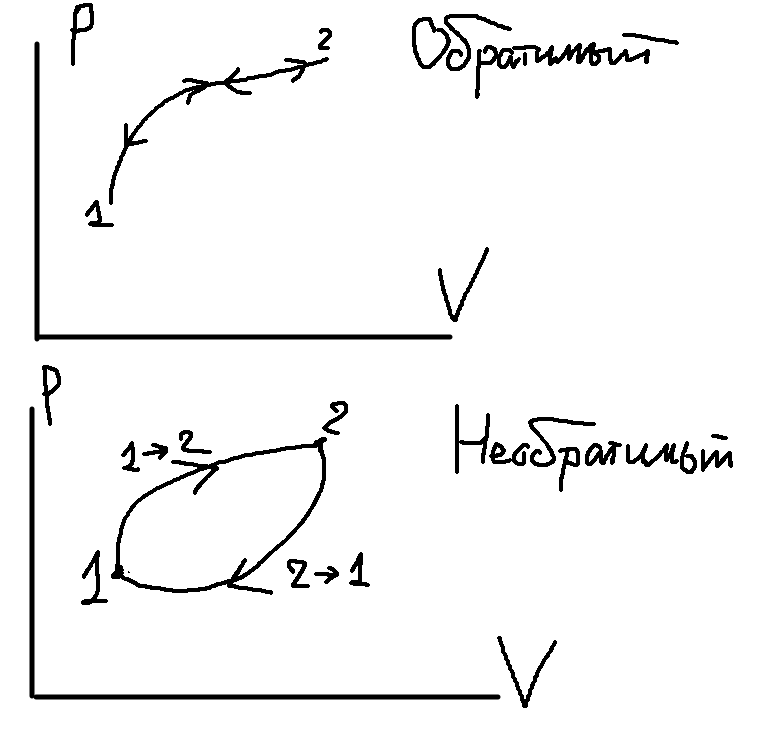 P
2
Обратимый
1
V
P
2
1→2
Необратимый
1
2→1
V